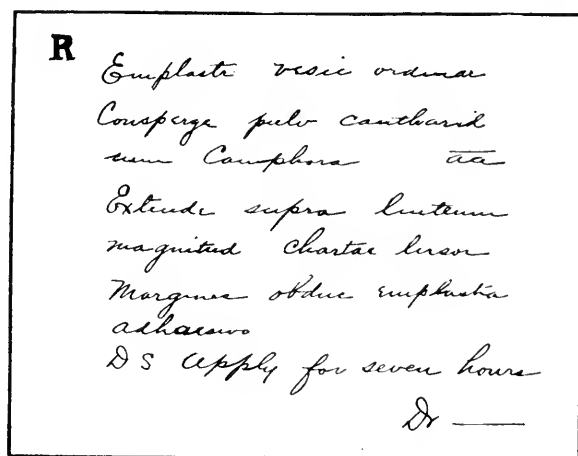 R
Emplastr vesic ordinar
Consperge pulv cantharid
cum Camphora aa
Extende supra linteum
magnitud chartae lusor
Margines obduc emplastra
adhaesivo
DS Apply for seven hours
Dr —